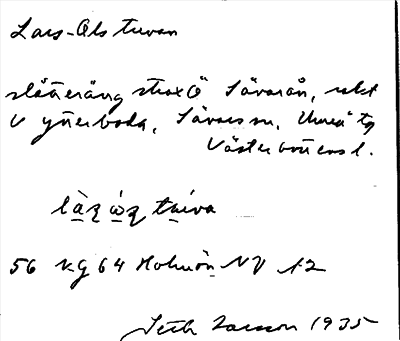 Lars-Ols tuvan
slåtteräng strax Ö Sävarån, rakt
V Ytterboda, Sävars sn, Umeå tg
Västerbottens l.
là̱ʐ ò̱ʐ ta̱iva
56 kg 64 Holmön NV A2
Seth Larsson 1935